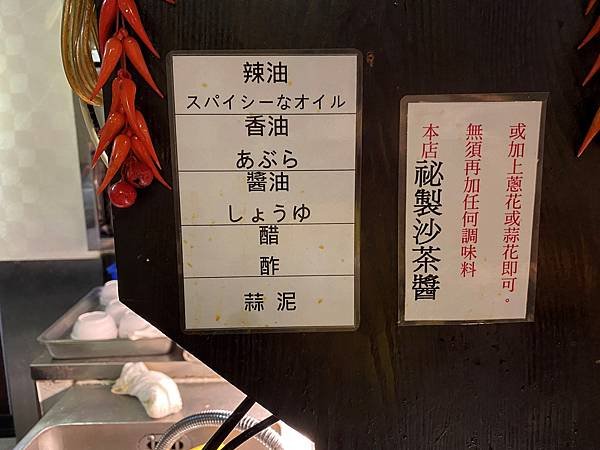 辣油
スパイシーなオイル
香油
あぶら
醬油
しょうゆ
醋
酢
蒜 泥
本店祕製沙茶醬
無須再加任何調味料
或加上蔥花或蒜花即可。